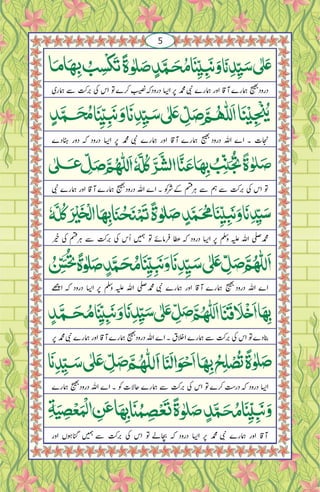 5
عَلٰى سَيِّدِنَا وَنَبِيِّنَا مُحَمَّدٍ صَلٰوةً تَكْسِبُ بِهَا مَا
درود بھیج ہمارے آقا اور ہمارے نبی محمد پر ایسا درود کہ نصیب کرے تو اس کی برکت سے ہماری
يُنْجِيْنَا اَللّٰهُمَّ صَلِّ عَلٰى سَيِّدِنَا وَنَبِيِّنَا مُحَمَّدٍ
نجات ۔ اے اللہ درود بھیج ہمارے آقا اور ہمارے نبی محمد پر ایسا درود کہ دور بنادے
صَلٰوةً تُجَنِّبُ بِهَا عَنَّا الشَّرَّ كُلَّهٗ اَللّٰهُمَّ صَلِّ عَلٰى
تو اس کی برکت سے ہم سے ہر قسم کے شر کو ۔ اے اللہ درود بھیج ہمارے آقا اور ہمارے نبی
سَيِّدِنَا وَنَبِيِّنَا مُحَمَّدٍ صَلٰوةً تَمْنَحُنَا بِهَا الْخَيْرَ كُلَّهٗ
محمد صلی اللہ علیہ وسلم پر ایسا درود کہ عطا فرمائے تو ہمیں اس کی برکت سے ہر قسم کی خیر
اَللّٰهُمَّ صَلِّ عَلٰى سَيِّدِنَا وَنَبِيِّنَا مُحَمَّدٍ صَلٰوةً تُحَسِّنُ
اے اللہ درود بھیج ہمارے آقا اور ہمارے نبی محمد صلی اللہ علیہ وسلم پر ایسا درود کہ اچھے
بِهَا اَخْلَاقَنَا اَللّٰهُمَّ صَلِّ عَلٰى سَيِّدِنَا وَنَبِيِّنَا مُحَمَّدٍ
بنادے تو اس کی برکت سے ہمارے اخلاق ۔ اے اللہ درود بھیج ہمارے آقا اور ہمارے نبی محمد پر
صَلٰوةً تُصْلِحُ بِهَا اَحْوَالَنَا اَللّٰهُمَّ صَلِّ عَلٰى سَيِّدِنَا
ایسا درود کہ درست کرے تو اس کی برکت سے ہمارے حالات کو ۔ اے اللہ درود بھیج ہمارے
وَنَبِيِّنَا مُحَمَّدٍ صَلٰوةً تَعْصِمُنَا بِهَا عَنِ الْمَعْصِيَةِ
آقا اور ہمارے نبی محمد پر ایسا درود کہ بچالے تو اس کی برکت سے ہمیں گناہوں اور